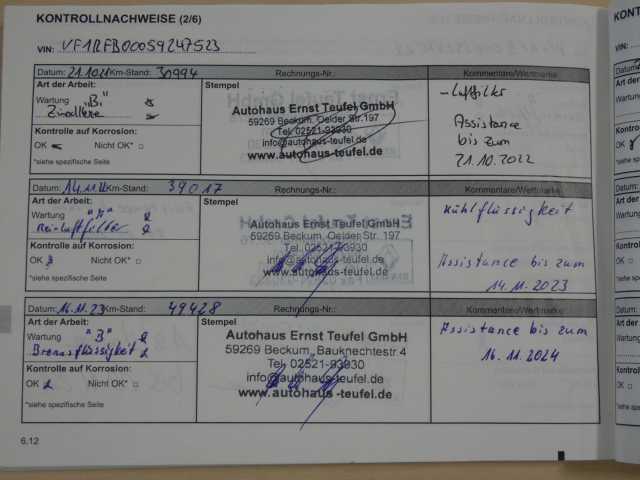 KONTROLLNACHWEISE (2/6)
VIN: VF1RFB00059247523
Datum: 21.10.21 Km-Stand: 30994 Rechnungs-Nr.: Kommentare/Wertmarke
Art der Arbeit: Stempel
Wartung "B"
Kontrolle auf Korrosion:
OK Nicht OK*
*siehe spezifische Seite
Autohaus Ernst Teufel GmbH
59269 Beckum, Oelder Str. 197
Tel. 02521-93930
info@autohaus-teufel.de
www.autohaus-teufel.de
- Luftfilter
Assistance
bis zum
21.10.2022
Datum: Km-Stand: 39017 Rechnungs-Nr.: Kommentare/Wertmarke
Art der Arbeit: Stempel
Wartung "A"
Kontrolle auf Korrosion:
OK Nicht OK*
*siehe spezifische Seite
Autohaus Ernst Teufel GmbH
59269 Beckum, Oelder Str. 197
Tel. 02521-93930
info@autohaus-teufel.de
www.autohaus-teufel.de
Kühlflüssigkeit
Assistance bis zum
14.11.2023
Datum: 16.11.23 Km-Stand: 49428 Rechnungs-Nr.: Kommentare/Wertmarke
Art der Arbeit: Stempel
Wartung "B"
Bremsflüssigkeit
Kontrolle auf Korrosion:
OK Nicht OK*
*siehe spezifische Seite
Autohaus Ernst Teufel GmbH
59269 Beckum, Bauknechtestr 4
Tel. 02521-93930
info@autohaus-teufel.de
www.autohaus-teufel.de
Assistance bis zum
16.11.2024
6.12